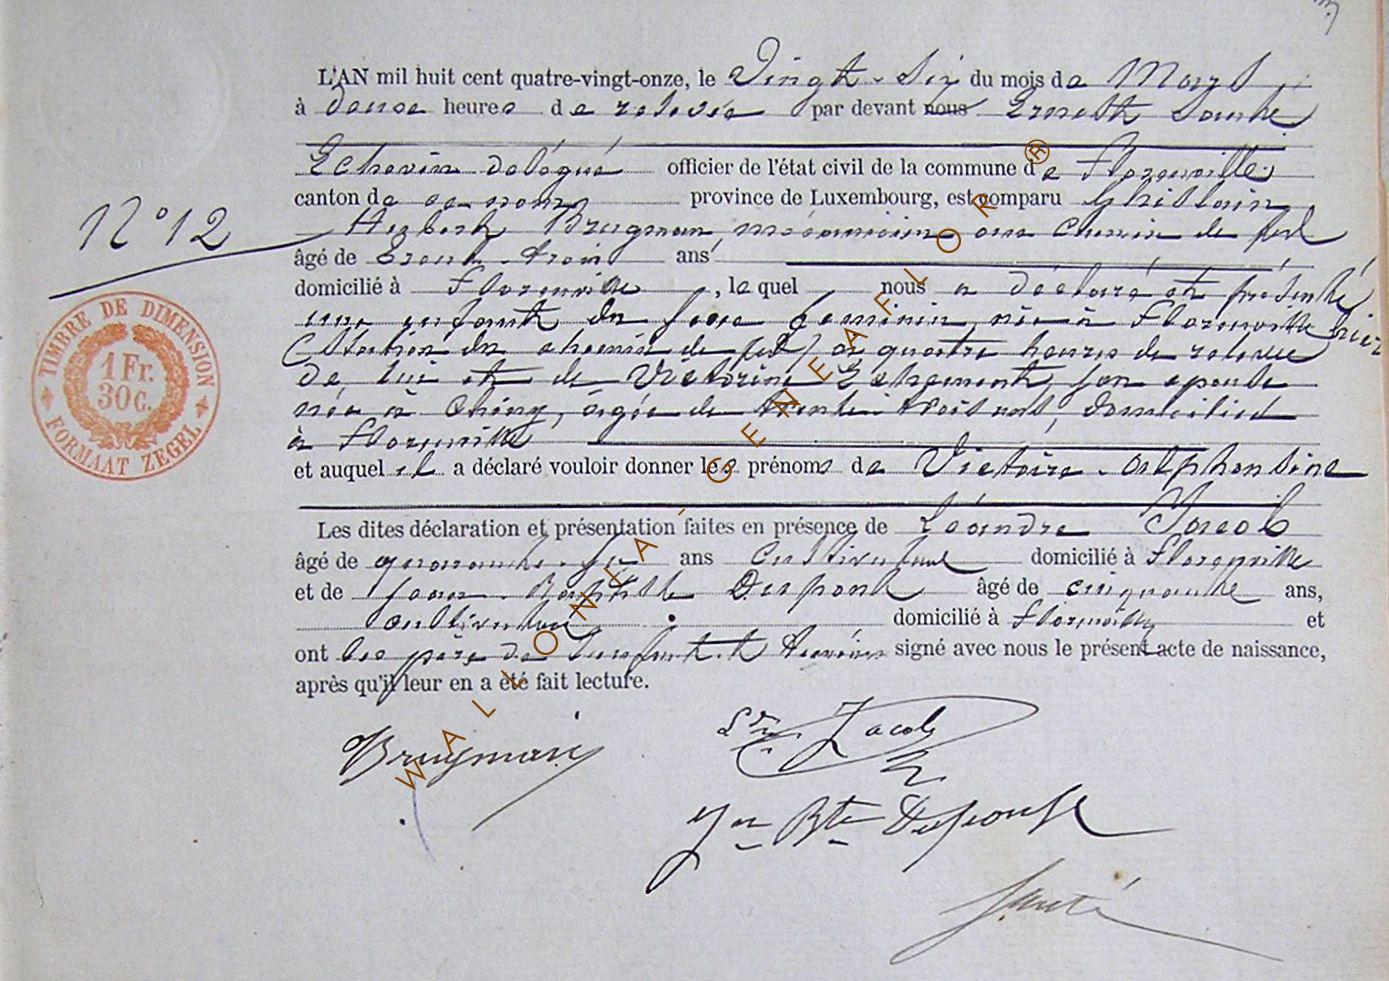 L'AN mil huit cent quatre-vingt-onze, le Vingt-Six du mois de Mars
à douze heures de relevée par devant nous Ernest Santé
Echevin délégué officier de l'état civil de la commune de Florenville
canton de ce nom province de Luxembourg, est comparu Ghislain
N° 12
Hubert Brugman, mécanicien au Chemin de fer
âgé de Trente-trois ans
domicilié à Florenville, le quel nous a déclaré et présenté
une enfant du sexe féminin, née à Florenville hier
(Station du chemin de fer) à quatre heures de relevée
de lui et de Victorine son épouse
née à Chiny, âgée de trente-trois ans, domiciliés
à Florenville
et auquel il a déclaré vouloir donner les prénoms de Victoire-Alphonsine
Les dites déclaration et présentation faites en présence de Léandre Jacob
âgé de quarante-six ans Cultivateur domicilié à Florenville
et de Jean-Baptiste Desponk âgé de cinquante ans,
Cultivateur domicilié à Florenville et
ont les père de l'enfant et témoins signé avec nous le présent acte de naissance,
après qu'il leur en a été fait lecture.
TIMBRE DE DIMENSION
1 Fr.
30 C.
FORMAAT ZEGEL
Brugman
Jacob
Jn Bte
Santé
WALLONIA-GENEAFLOR®